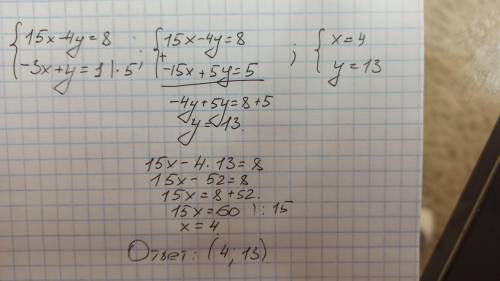 {15x-4y=8 ; {15x-4y=8 ; {x=4
{-3x+y=1 |·5 + {-15x+5y=5 {y=13
-4y+5y=8+5
y=13.
15x-4·13=8
15x-52=8
15x=8+52.
15x=60 |:15
x=4.
Ответ: (4; 13).